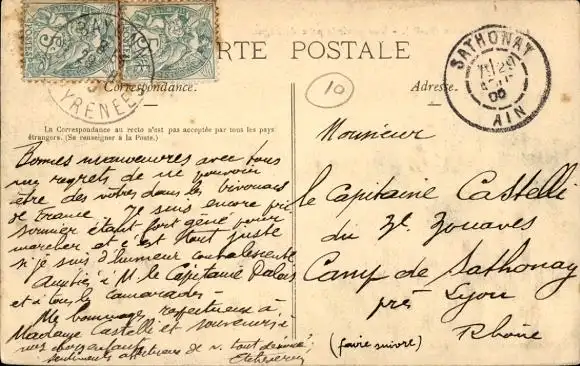 CARTE POSTALE
Correspondance.
Adresse.
SATHONAY
29
AIN
10
La Correspondance au recto n'est pas acceptée par tous les pays
étrangers. (Se renseigner à la Poste.)
Bonnes manœuvres avec tous
mes regrets de ne pouvoir
être des vôtres dans les bivouacs
de France. Je suis encore pri
sonnier étant fort gêné pour
marcher et c'est tout juste
si je suis d'humeur convalescente
Amitiés à M. le Capitaine
et à tous les camarades -
Mes hommages respectueux à
Madame Castelli et souvenirs à
vos enfants
Sentiments affectueux de v. tout dévoué
Monsieur
le Capitaine Castelli
du 3e Zouaves
Camp de Sathonay
près Lyon
Rhône
(faire suivre)